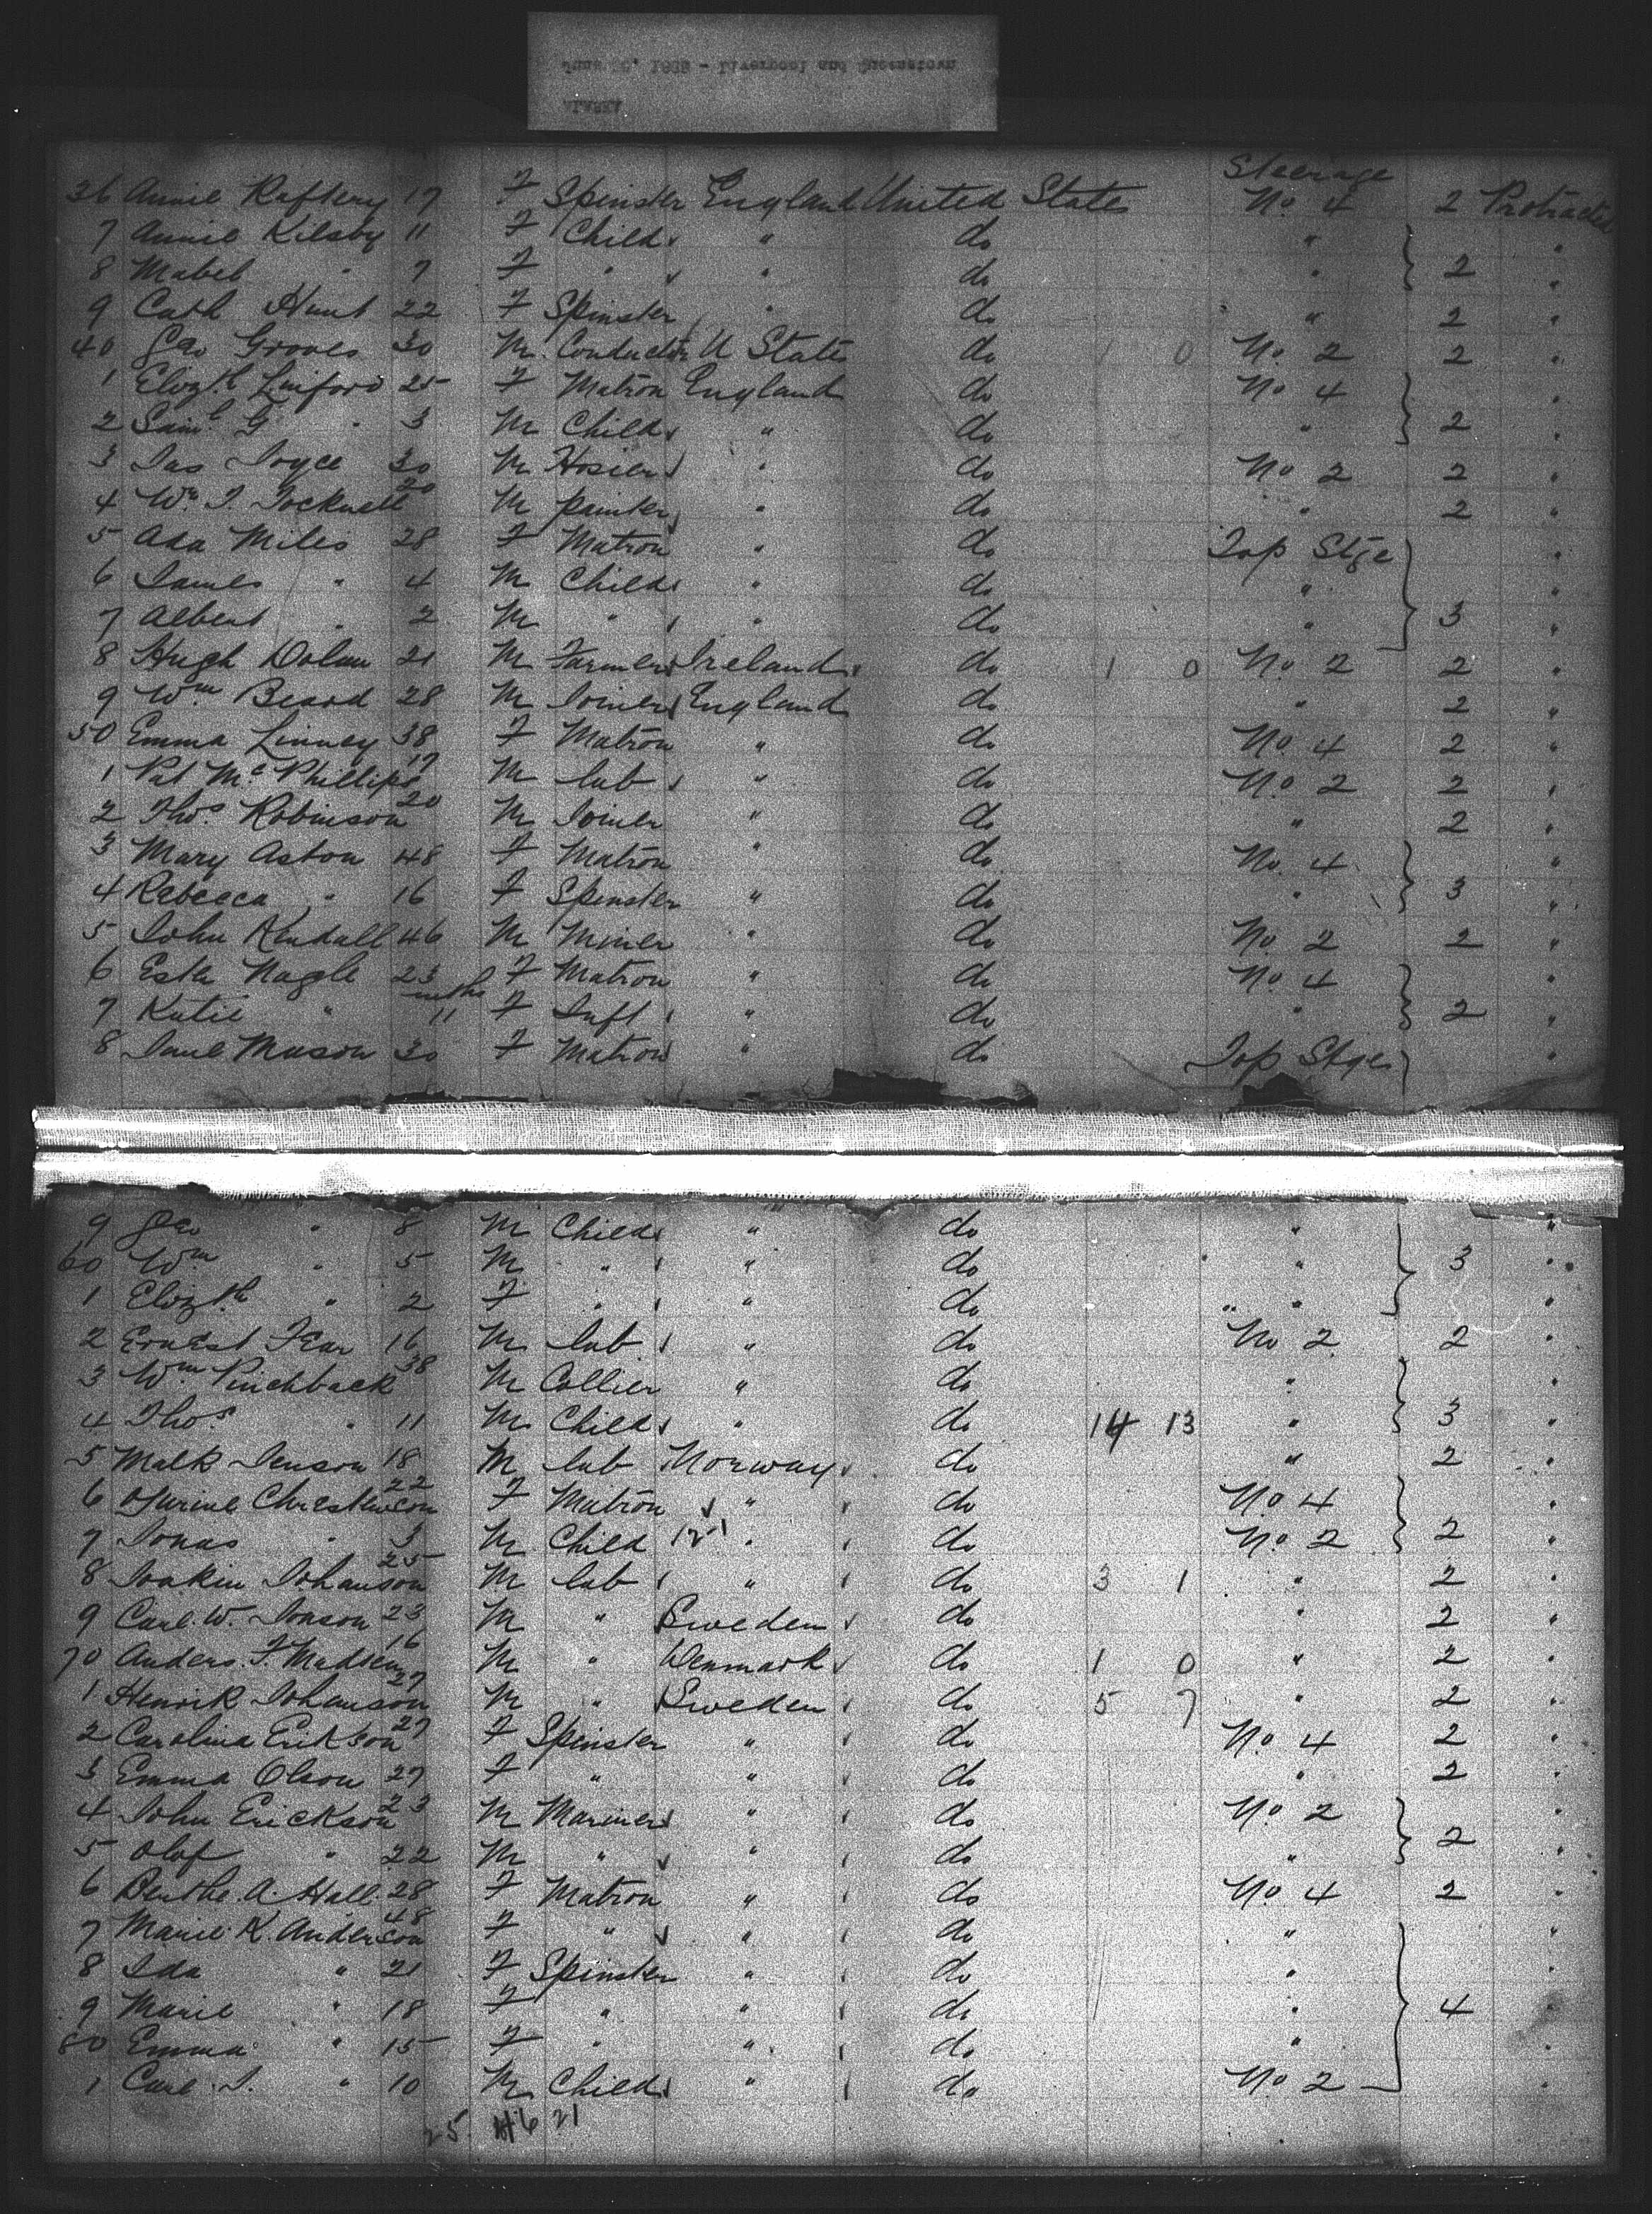 June 20, 1888 - Liverpool and Queenstown
ALASKA
Steerage
36 Annie Raftery 17 F Spinster England United States No. 4 2 Protracted
7 Annie Kilsby 11 F Child " do " "
8 Mabel " 7 F " " do " 2 "
9 Cath Hunt 22 F Spinster " do " 2 "
40 Geo Groves 30 M Conductor U States do 1 0 No. 2 2 "
1 Elizth Linford 25 F Matron England do No. 4 "
2 Saml G " 3 M Child " do " 2 "
3 Jas Joyce 30 M Hosier " do No 2 2 "
4 Wm. J. Tocknell 20 M painter " do " 2 "
5 Ada Miles 28 F Matron " do Top Stge "
6 James " 4 M Child " do " "
7 Albert " 2 M " " do " 3 "
8 Hugh Dolan 21 M Farmer Ireland do 1 0 No. 2 2 "
9 Wm Beard 28 M Joiner England do " 2 "
50 Emma Linney 38 F Matron " do No. 4 2 "
1 Pat McPhillips 19 M lab " do No. 2 2 "
2 Thos. Robinson 20 M Joiner " do " 2 "
3 Mary Aston 48 F Matron " do No. 4 "
4 Rebecca " 16 F Spinster " do " 3 "
5 John Kendall 46 M Miner " do No. 2 2 "
6 Esth Nagle 23 F Matron " do No. 4 "
7 Katie " mths 11 F Inft " do " 2 "
8 Jane Mason 30 F Matron " do Top Stge "
9 Geo " 8 M Child " do " "
60 Wm " 5 M " " do " 3 "
1 Elizth " 2 F " " do " "
2 Ernest Fear 16 M lab " do No 2 2 "
3 Wm Pinchback 38 M Collier " do " "
4 Thos " 11 M Child " do 14 13 " 3 "
5 Malk Jenson 18 M lab Norway do " 2 "
6 Christenson 22 F Matron " do No. 4 "
7 Jonas " 3 M Child " do No. 2 2 "
8 Joakin Johanson 25 M lab " do 3 1 " 2 "
9 Carl. W. Jonson 23 M " Sweden do " 2 "
70 Anders. F. Madsen 16 M " Denmark do 1 0 " 2 "
1 Henrik Johanson 27 M " Sweden do 5 7 " 2 "
2 Carolina Erikson 27 F Spinster " do No. 4 2 "
3 Emma Olson 27 F " " do " 2 "
4 John Erickson 23 M Mariner " do No. 2 "
5 Olof " 22 M " " do " 2 "
6 Benthe. A. Hall 28 F Matron " do No. 4 2 "
7 Marie K. Anderson 48 F " " do " "
8 Ida " 21 F Spinster " do " "
9 Marie " 18 F " " do " 4 "
80 Emma " 15 F " " do " "
1 Carl. J. " 10 M Child " do No. 2 "
25 46 21